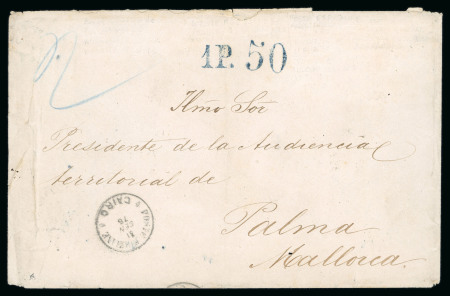 2
1P. 50
Ilmo Sor
Presidente de la Audiencia
territorial de
Palma
Mallorca.
CAIRO